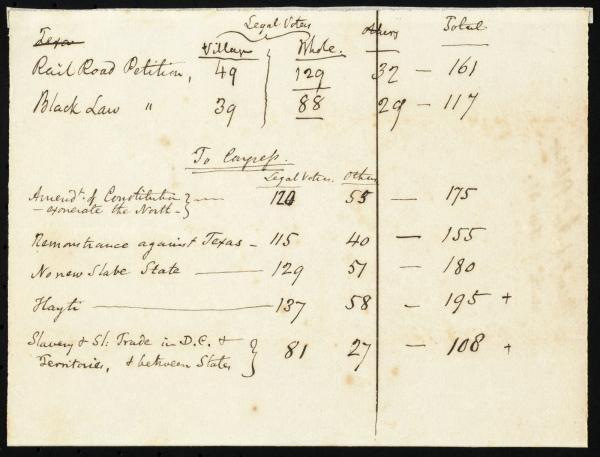 Legal Voters
Texas Village Whole. Others Total
Rail Road Petition, 49 129 32 — 161
Black Law " 39 88 29 — 117
To Congress.
Legal Voters. Others
Amendt. of Constitution } — 120 55 — 175
— exonerate the North — }
Remonstrance against Texas — 115 40 — 155
No new Slave State — 129 51 — 180
Hayti — 137 58 — 195 +
Slavery & Sl: Trade in D.C. & } 81 27 — 108 +
Territories, & between States }